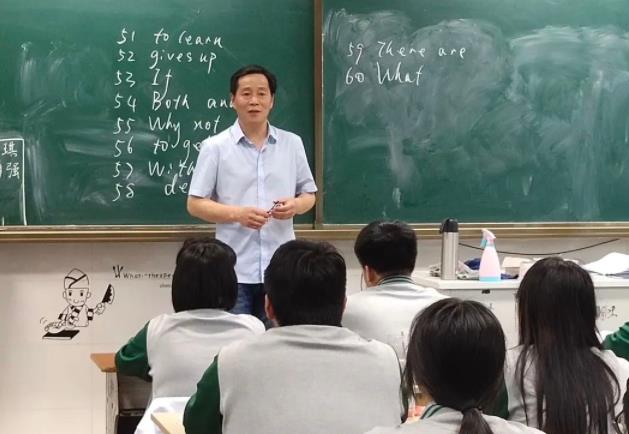 51 to learn
52 gives up
53 It
54 Both an
55 Why not
56 to ge
57 With
58 de
59 There are
60 What
琪
强